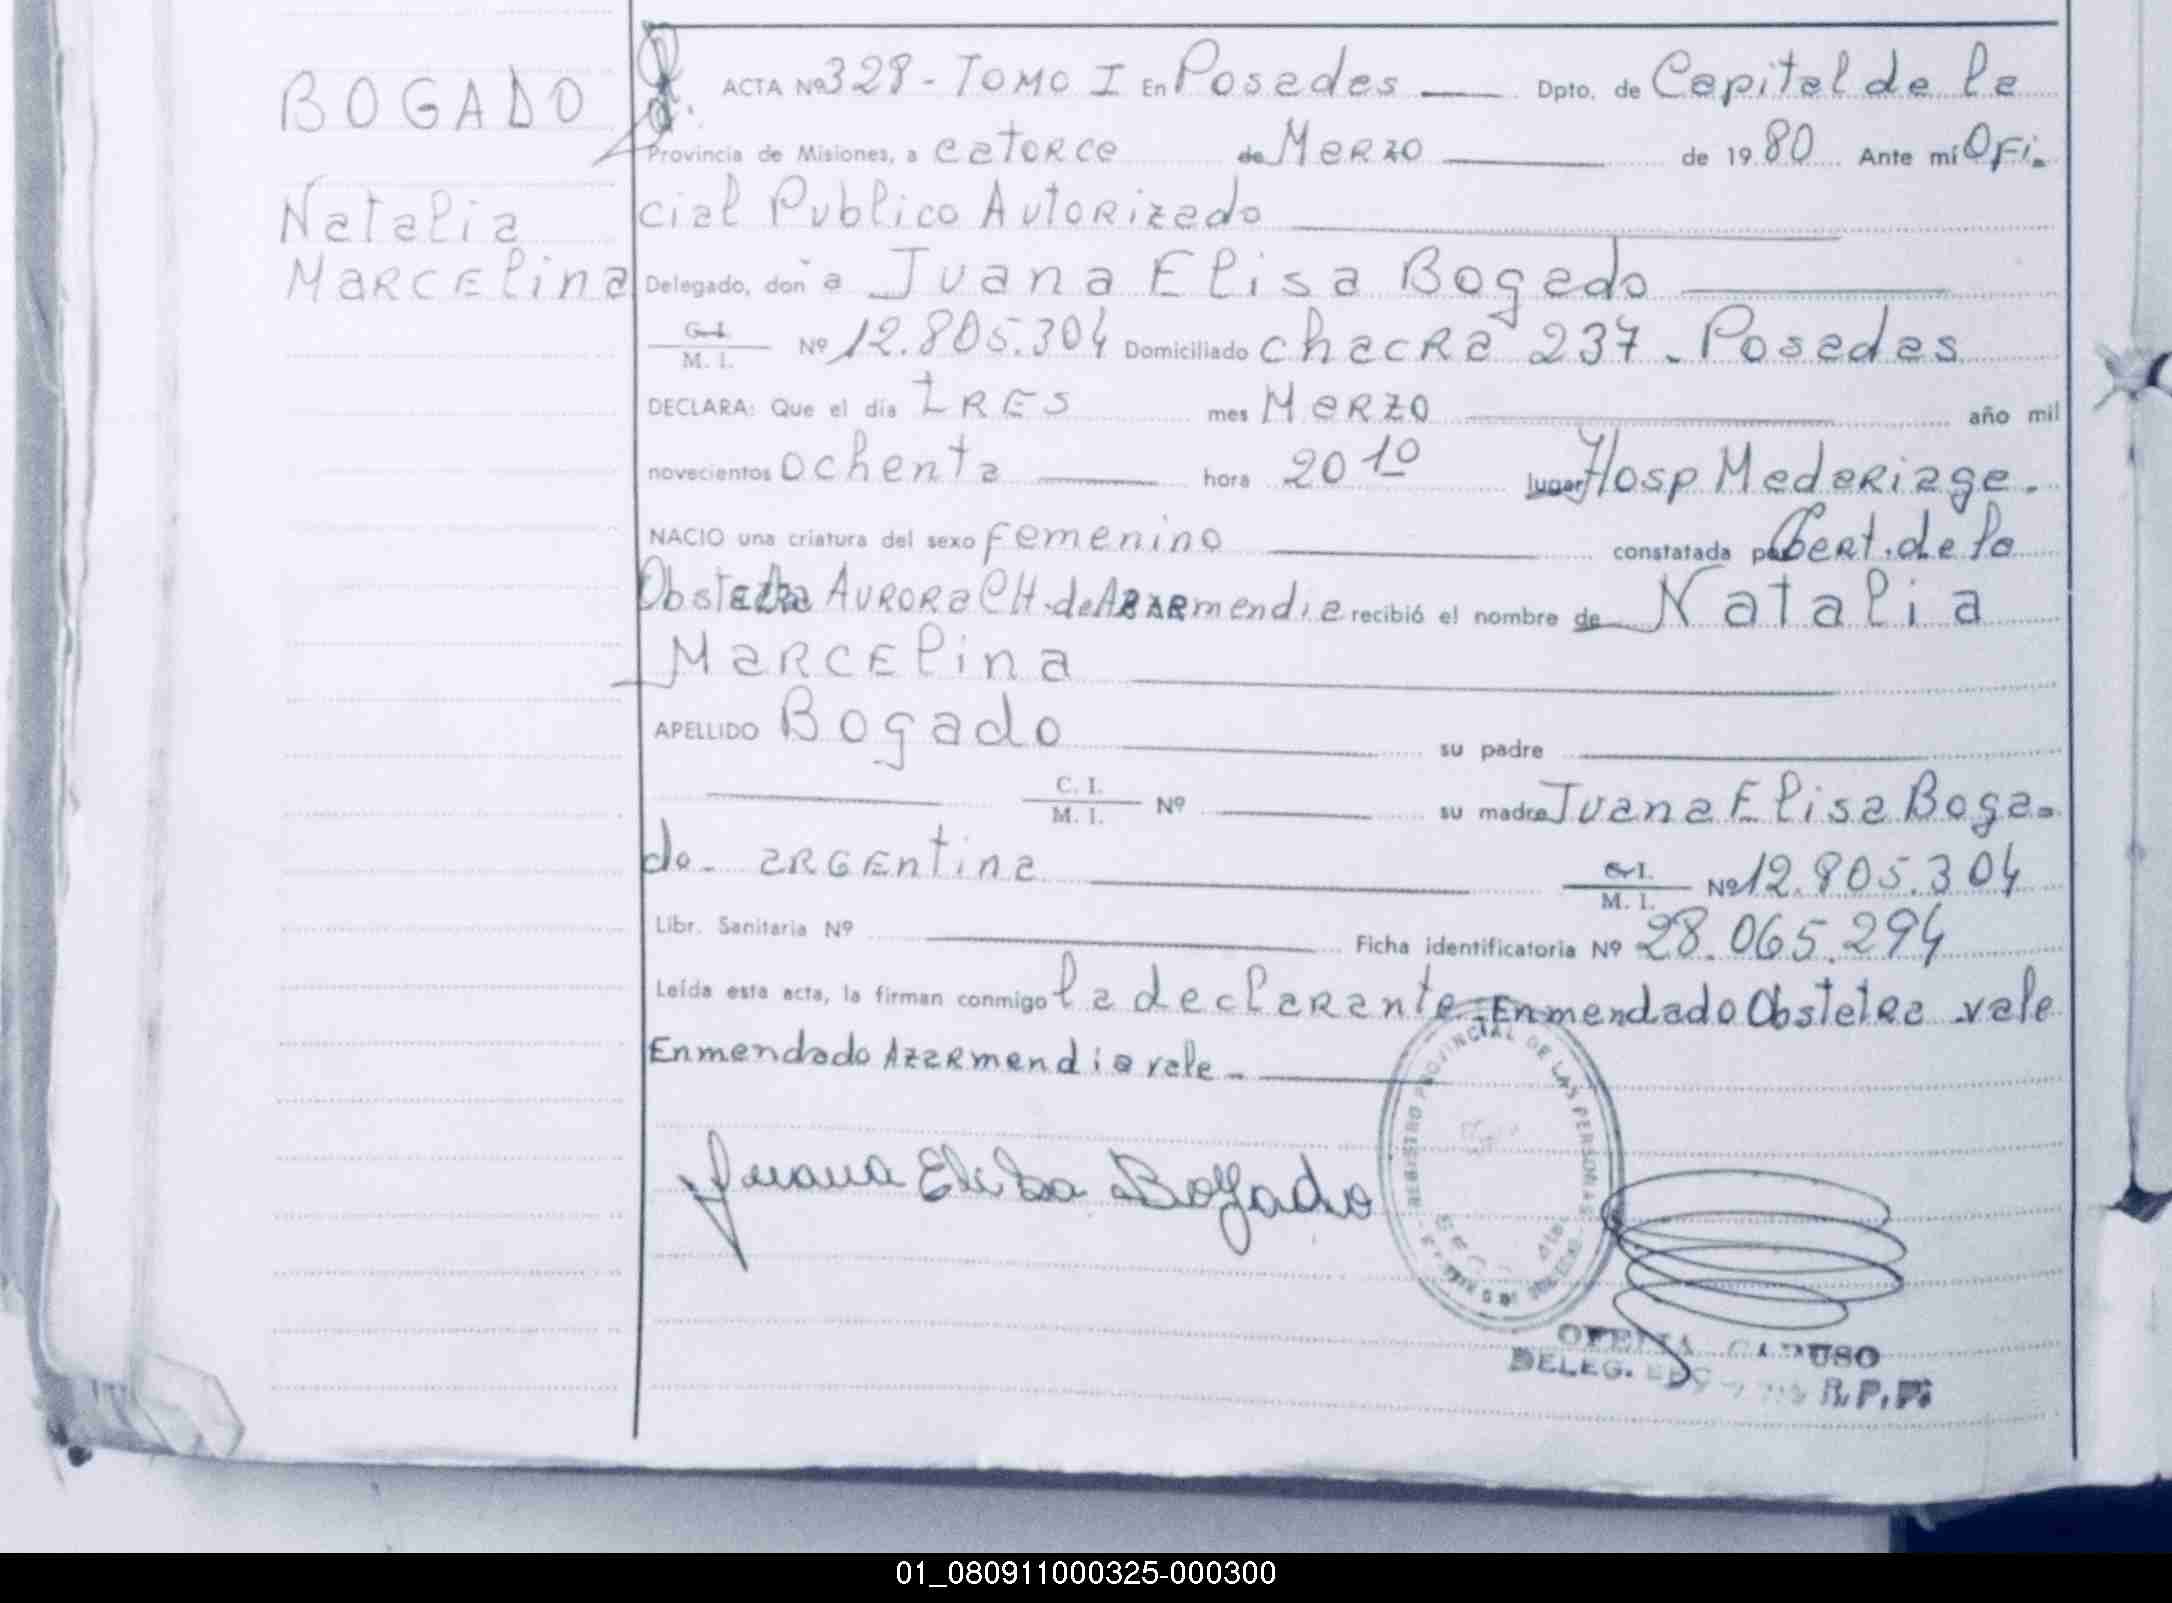 BOGADO
Natalia
Marcelina
ACTA Nº 328 - TOMO I En Posadas Dpto. de Capital de la
Provincia de Misiones, a catorce de Marzo de 1980 Ante mí Ofi-
cial Publico Autorizado
Delegado, don a Juana Elisa Bogado
C. I.
M. I. Nº 12.805.304 Domiciliado chacra 237 - Posadas
DECLARA: Que el día tres mes Marzo año mil
novecientos ochenta hora 20 10 lugar Hosp Madariaga.
NACIO una criatura del sexo femenino constatada por Cert. de la
Obstetra Aurora CH. de Azarmendia recibió el nombre de Natalia
Marcelina
APELLIDO Bogado su padre
C. I.
M. I. Nº su madre Juana Elisa Boga-
do - argentina C. I.
M. I. Nº 12.805.304
Libr. Sanitaria Nº Ficha identificatoria Nº 28.065.294
Leída esta acta, la firman conmigo la declarante - Enmendado Obstetra vale
Enmendado Azarmendia vale -
Juana Elisa Bogado
REGISTRO PROVINCIAL DE LAS PERSONAS
CARUSO
DELEG. R. P. P.
01_080911000325-000300